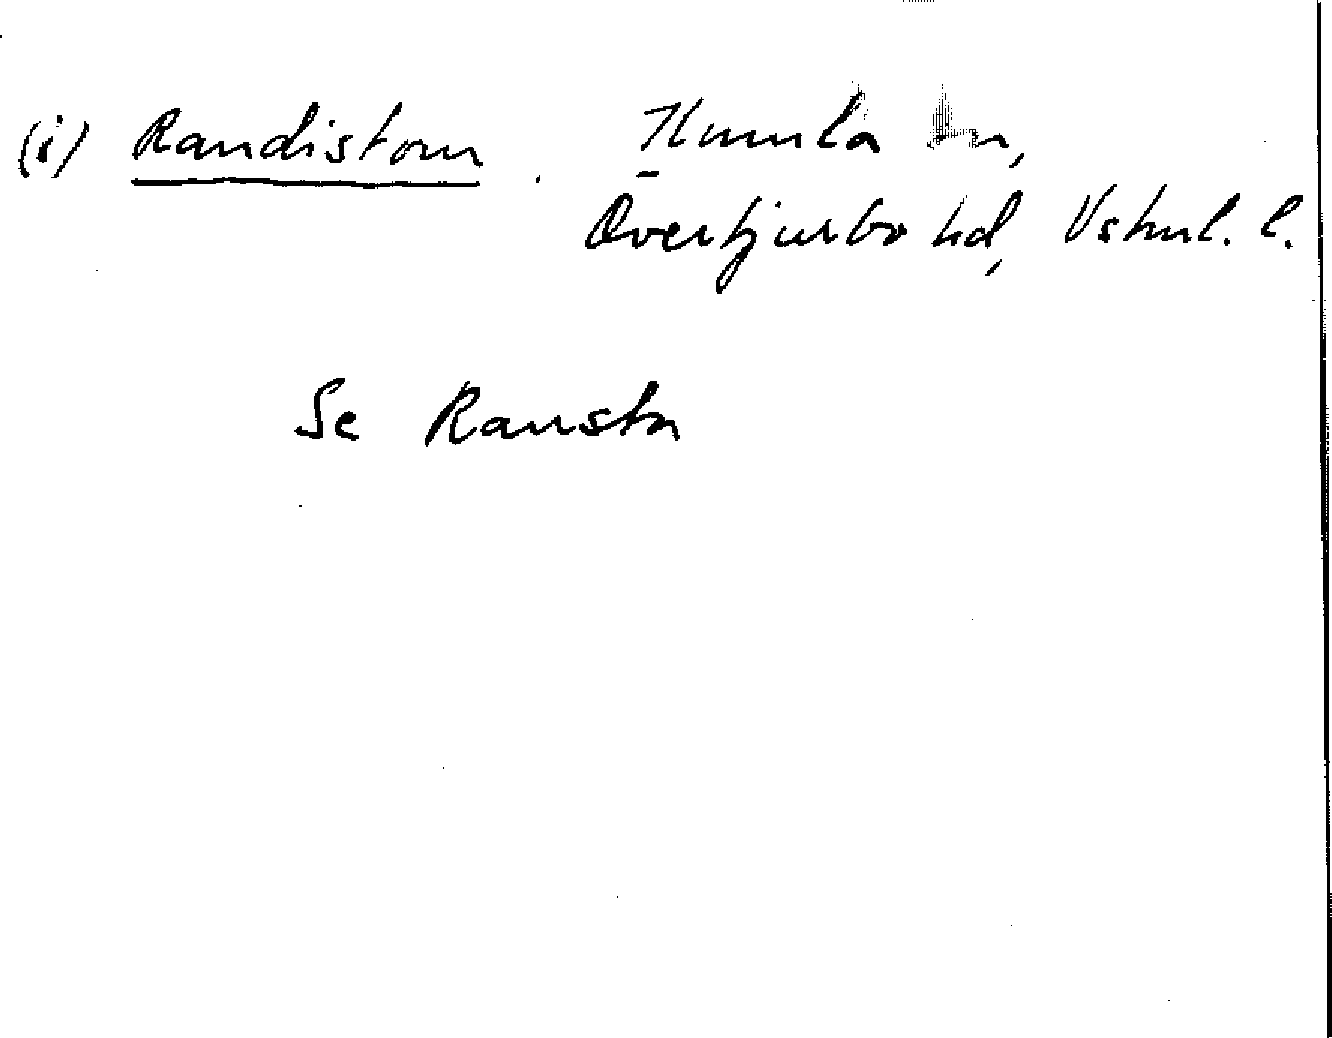 (i) Randistom. Humla sn,
Övertjurbo hd, Vstml. l.
Se Ransta